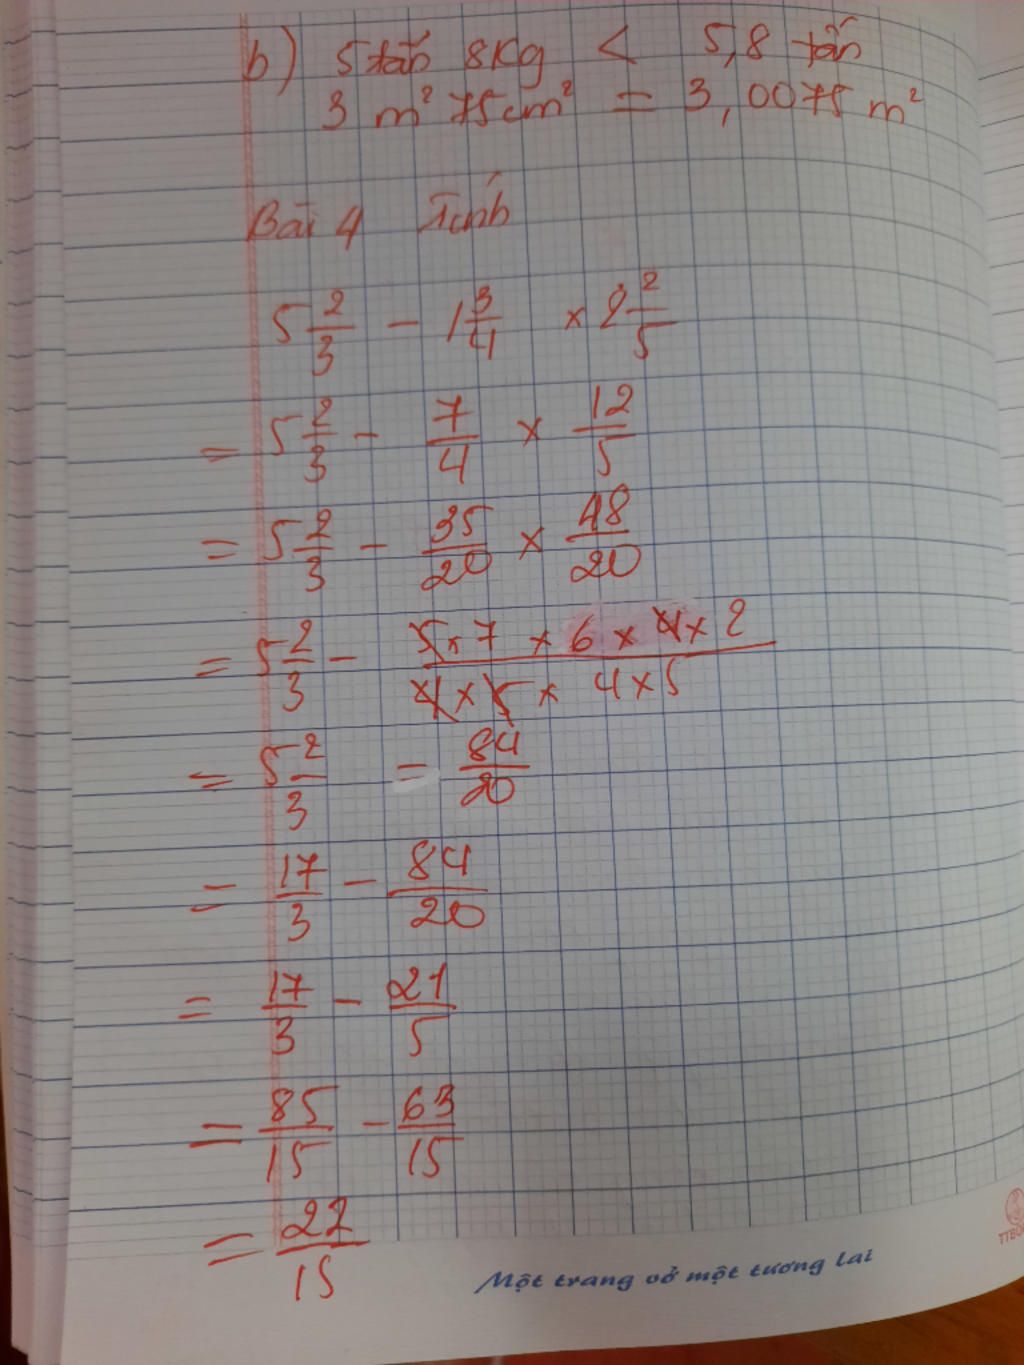 b) 5 tấn 8Kg < 5,8 tấn
3 m² 75cm² = 3,0075 m²
Bài 4 Tính
5 2/3 - 1 3/4 × 2 2/5
= 5 2/3 - 7/4 × 12/5
= 5 2/3 - 35/20 × 48/20
= 5 2/3 - 5×7 × 6 × 4 × 2 / 4 × 5 × 4 × 5
= 5 2/3 = 84/20
= 17/3 - 84/20
= 17/3 - 21/5
= 85/15 - 63/15
= 22/15
Một trang vở một tương lai